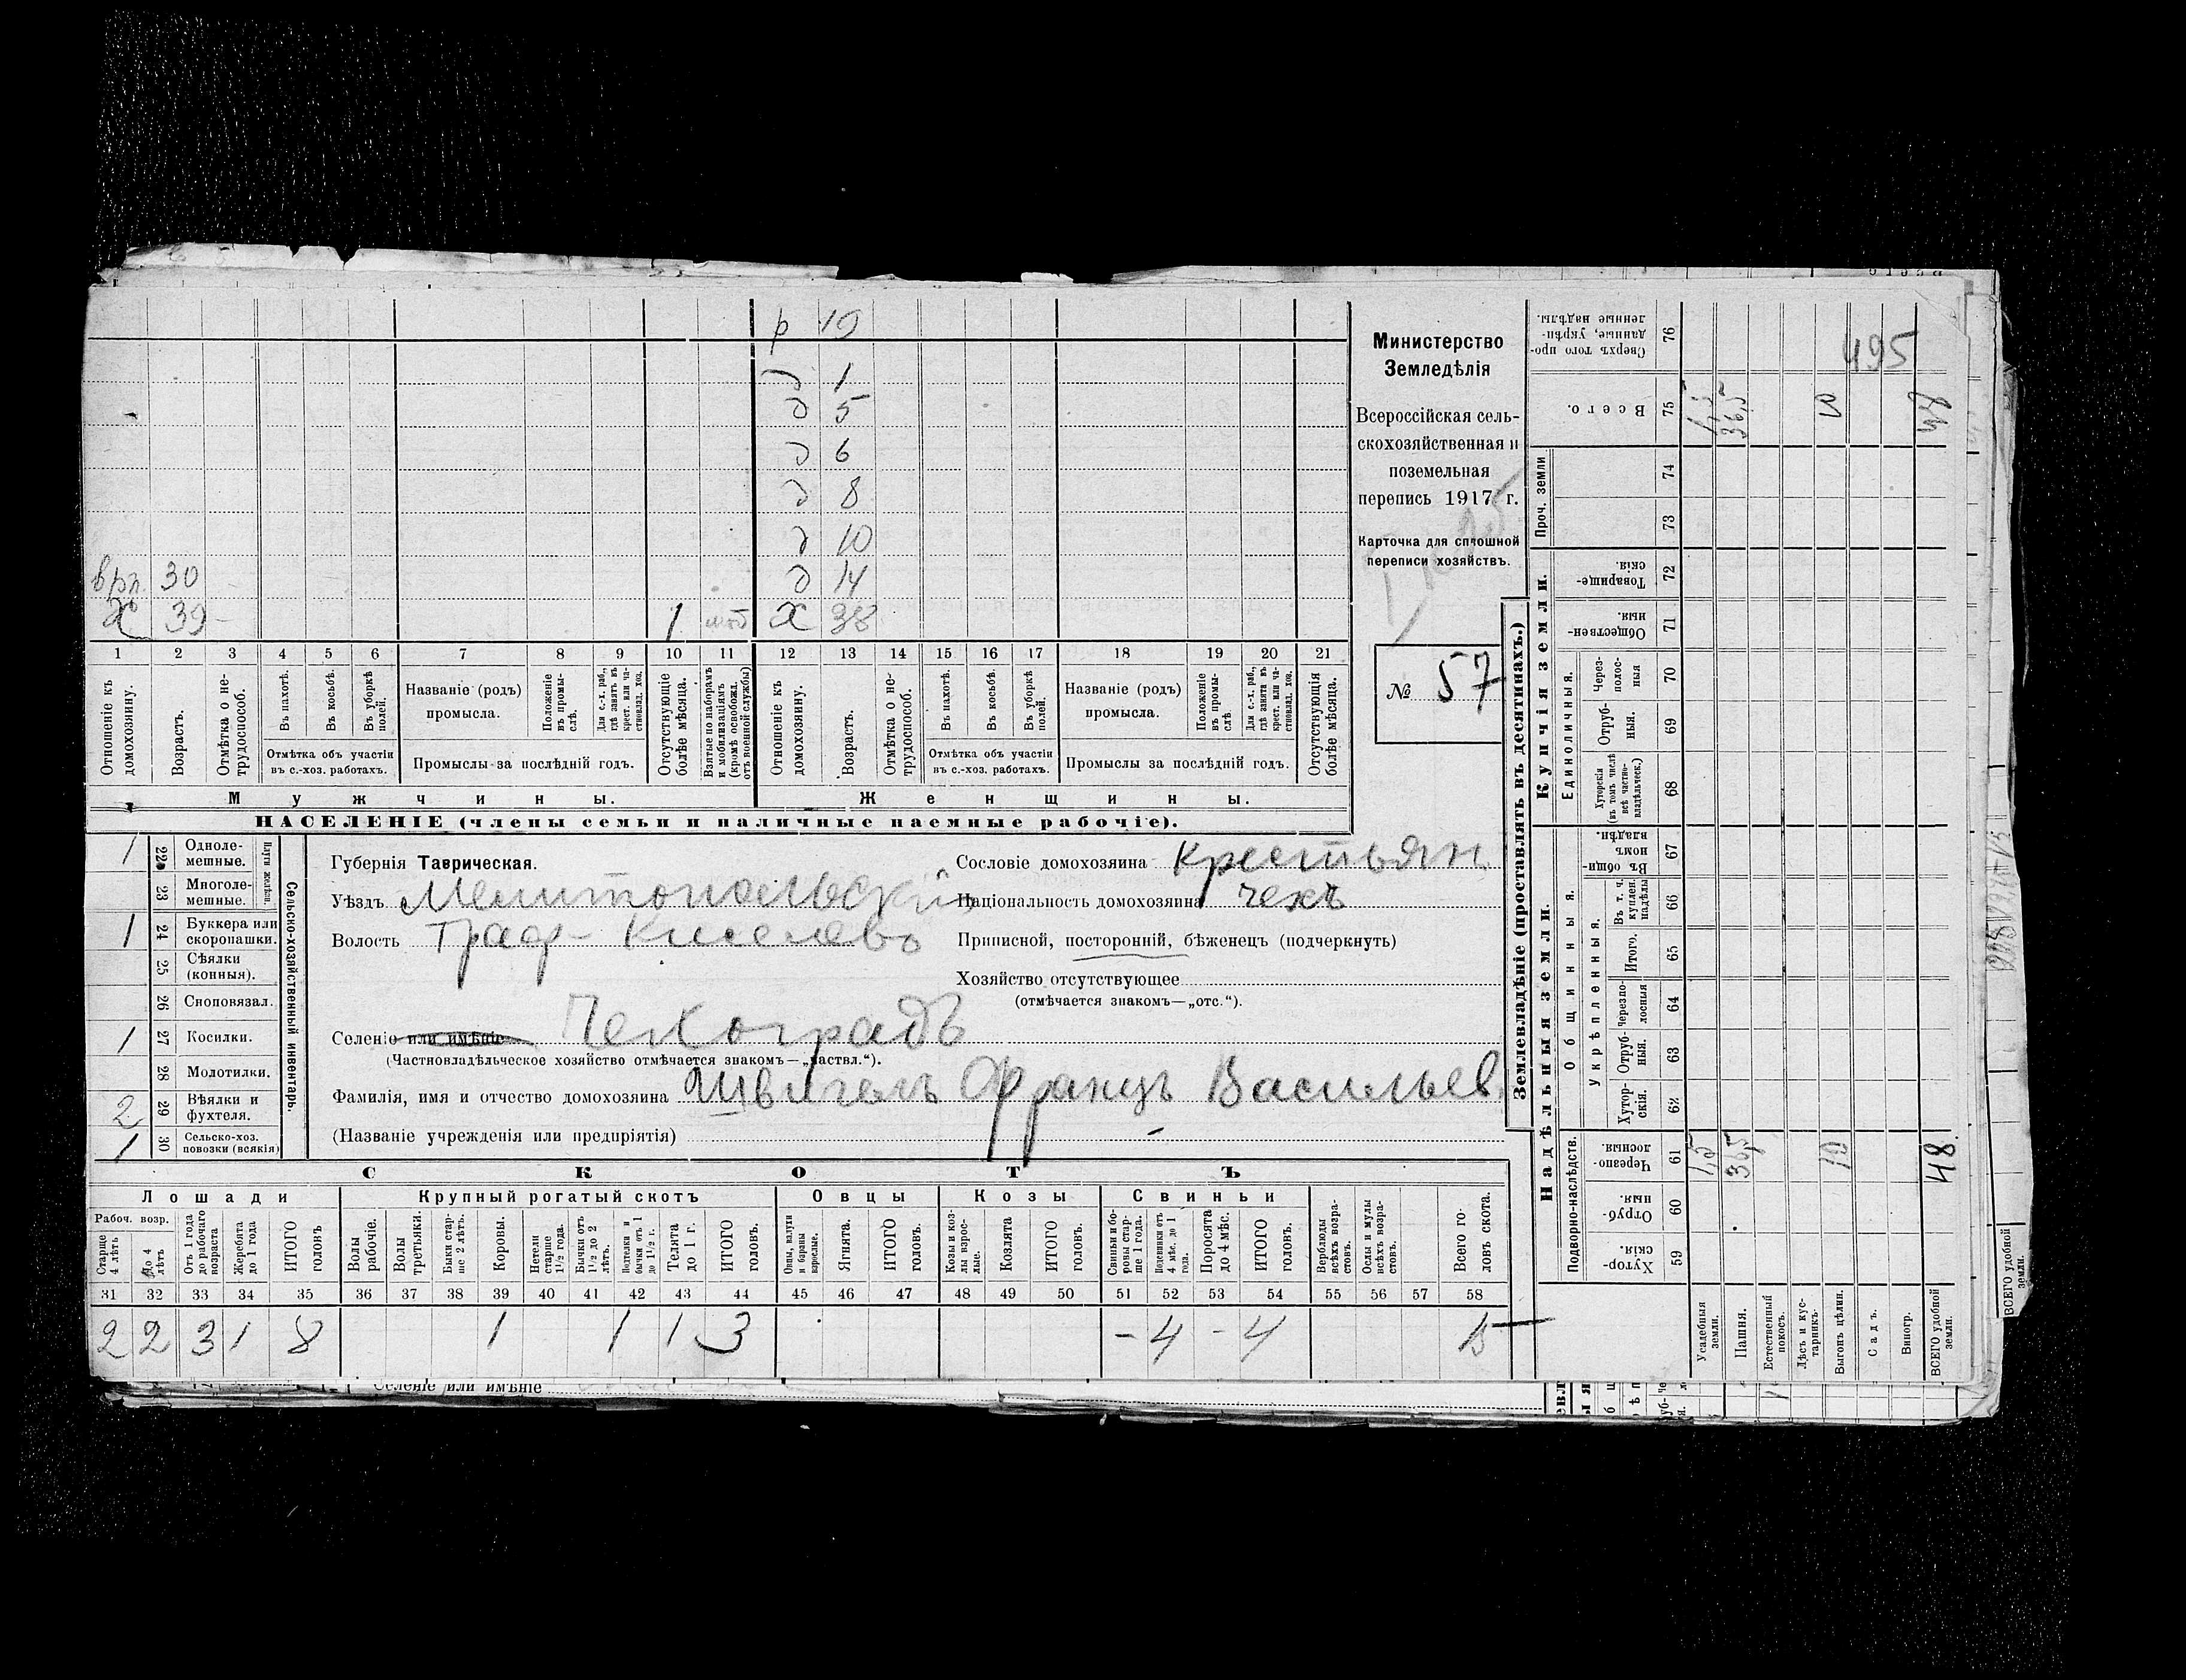 р 19
д 1
д 5
д 6
д 8
д 10
врп. 30 д 14
х 39 1 моб х 38
1 2 3 4 5 6 7 8 9 10 11 12 13 14 15 16 17 18 19 20 21
Отношеніе къ домохозяину.
Возрастъ.
Отмѣтка о не-трудоспособ.
Въ пахотѣ.
Въ косьбѣ.
Въ уборкѣ полей.
Отмѣтка объ участіи
въ с.-хоз. работахъ.
Названіе (родъ)
промысла.
Положеніе въ промы-слѣ.
Для с.-х. раб., гдѣ занятъ въ крест. или ча-стновлад. хоз.
Промыслы за послѣдній годъ.
Отсутствующіе болѣе мѣсяца.
Взятые по наборамъ и мобилизаціямъ (кромѣ освобожд. отъ военной службы)
Отношеніе къ домохозяину.
Возрастъ.
Отмѣтка о не-трудоспособ.
Въ пахотѣ.
Въ косьбѣ.
Въ уборкѣ полей.
Отмѣтка объ участіи
въ с.-хоз. работахъ.
Названіе (родъ)
промысла.
Положеніе въ промы-слѣ.
Для с.-х. раб., гдѣ занята въ крест. или ча-стновлад. хоз.
Промыслы за послѣдній годъ.
Отсутствующія болѣе мѣсяца.
Мужчины. Женщины.
НАСЕЛЕНІЕ (члены семьи и наличные наемные рабочіе).
Министерство
Земледѣлія
Всероссійская сель-
скохозяйственная и
поземельная
перепись 1917 г.
Карточка для сплошной
переписи хозяйствъ.
№ 57
Сельско-хозяйственный инвентарь.
Плуги желѣзн.
1 22 Одноле-мешные.
23 Многоле-мешные.
1 24 Буккера или скоропашки.
25 Сѣялки (конныя).
26 Сноповязал.
1 27 Косилки.
28 Молотилки.
2 29 Вѣялки и фухтеля.
1 30 Сельско-хоз. повозки (всякія)
Губернія Таврическая.
Уѣздъ Мелитопольскій
Волость Граф-Киселевъ
Селеніе или имѣніе Чехоградъ
(Частновладѣльческое хозяйство отмѣчается знакомъ—„частвл.“).
Фамилія, имя и отчество домохозяина Швигель Францъ Васильев
(Названіе учрежденія или предпріятія) -
Сословіе домохозяина Крестьян
Національность домохозяина чехъ
Приписной, посторонній, бѣженецъ (подчеркнуть)
Хозяйство отсутствующее
(отмѣчается знакомъ—„отс.“).
СКОТЪ
Лошади Крупный рогатый скотъ Овцы Козы Свиньи
Рабоч. возр.
Старше 4 лѣтъ
До 4 лѣтъ
Отъ 1 года до рабочаго возраста
Жеребята до 1 года
ИТОГО головъ
Волы рабочіе.
Волы третьяки.
Быки стар-ше 2 лѣтъ.
Коровы.
Нетели старше 1½ года.
Бычки отъ 1½ до 2 лѣтъ.
Подтелки и бычки отъ 1 до 1½ г.
Телята до 1 г.
ИТОГО головъ.
Овцы, валухи и бараны взрослые.
Ягнята.
ИТОГО головъ.
Козы и коз-лы взрос-лые.
Козлята
ИТОГО головъ.
Свиньи и бо-ровы стар-ше 1 года.
Подсвинки отъ 4 мѣс. до 1 года.
Поросята до 4 мѣс.
ИТОГО головъ.
Верблюды всѣхъ возра-стовъ.
Ослы и мулы всѣхъ возра-стовъ.
Всего го-ловъ скота.
31 32 33 34 35 36 37 38 39 40 41 42 43 44 45 46 47 48 49 50 51 52 53 54 55 56 57 58
2 2 3 1 8 1 1 1 3 - 4 - 4 15
Землевладѣніе (проставлять въ десятинахъ.)
Надѣльныя земли. Купчія земли.
Проч. земли
Подворно-наслѣдств.
Общинныя.
Укрѣпленныя.
Единоличныя.
Сверхъ того про-данные, укрѣп-ленные надѣлы. 76 495
Всего. 75 1,5 36,5 10 48
74
73
Товарище-скія. 72
Обществен-ныя. 71
Через-полос-ныя 70
Отруб-ныя. 69
Хуторскія (въ томъ числѣ всѣ частно-владѣльческ.) 68
Въ общин-номъ владѣн. 67
Въ т. ч. куплен. надѣлы 66
Итого. 65
Черезпо-лосныя 64
Отруб-ныя. 63
Хутор-скія. 62
Черезпо-лосныя. 61 1,5 36,5 10 48
Отруб-ныя. 60
Хутор-скія. 59
Усадебныя земли.
Пашня.
Естественный покосъ.
Лѣсъ и кус-тарникъ.
Выгонъ цѣлин.
Садъ.
Виногр.
ВСЕГО удобной земли.
ВСЕГО удобной земли.
Селеніе или имѣніе